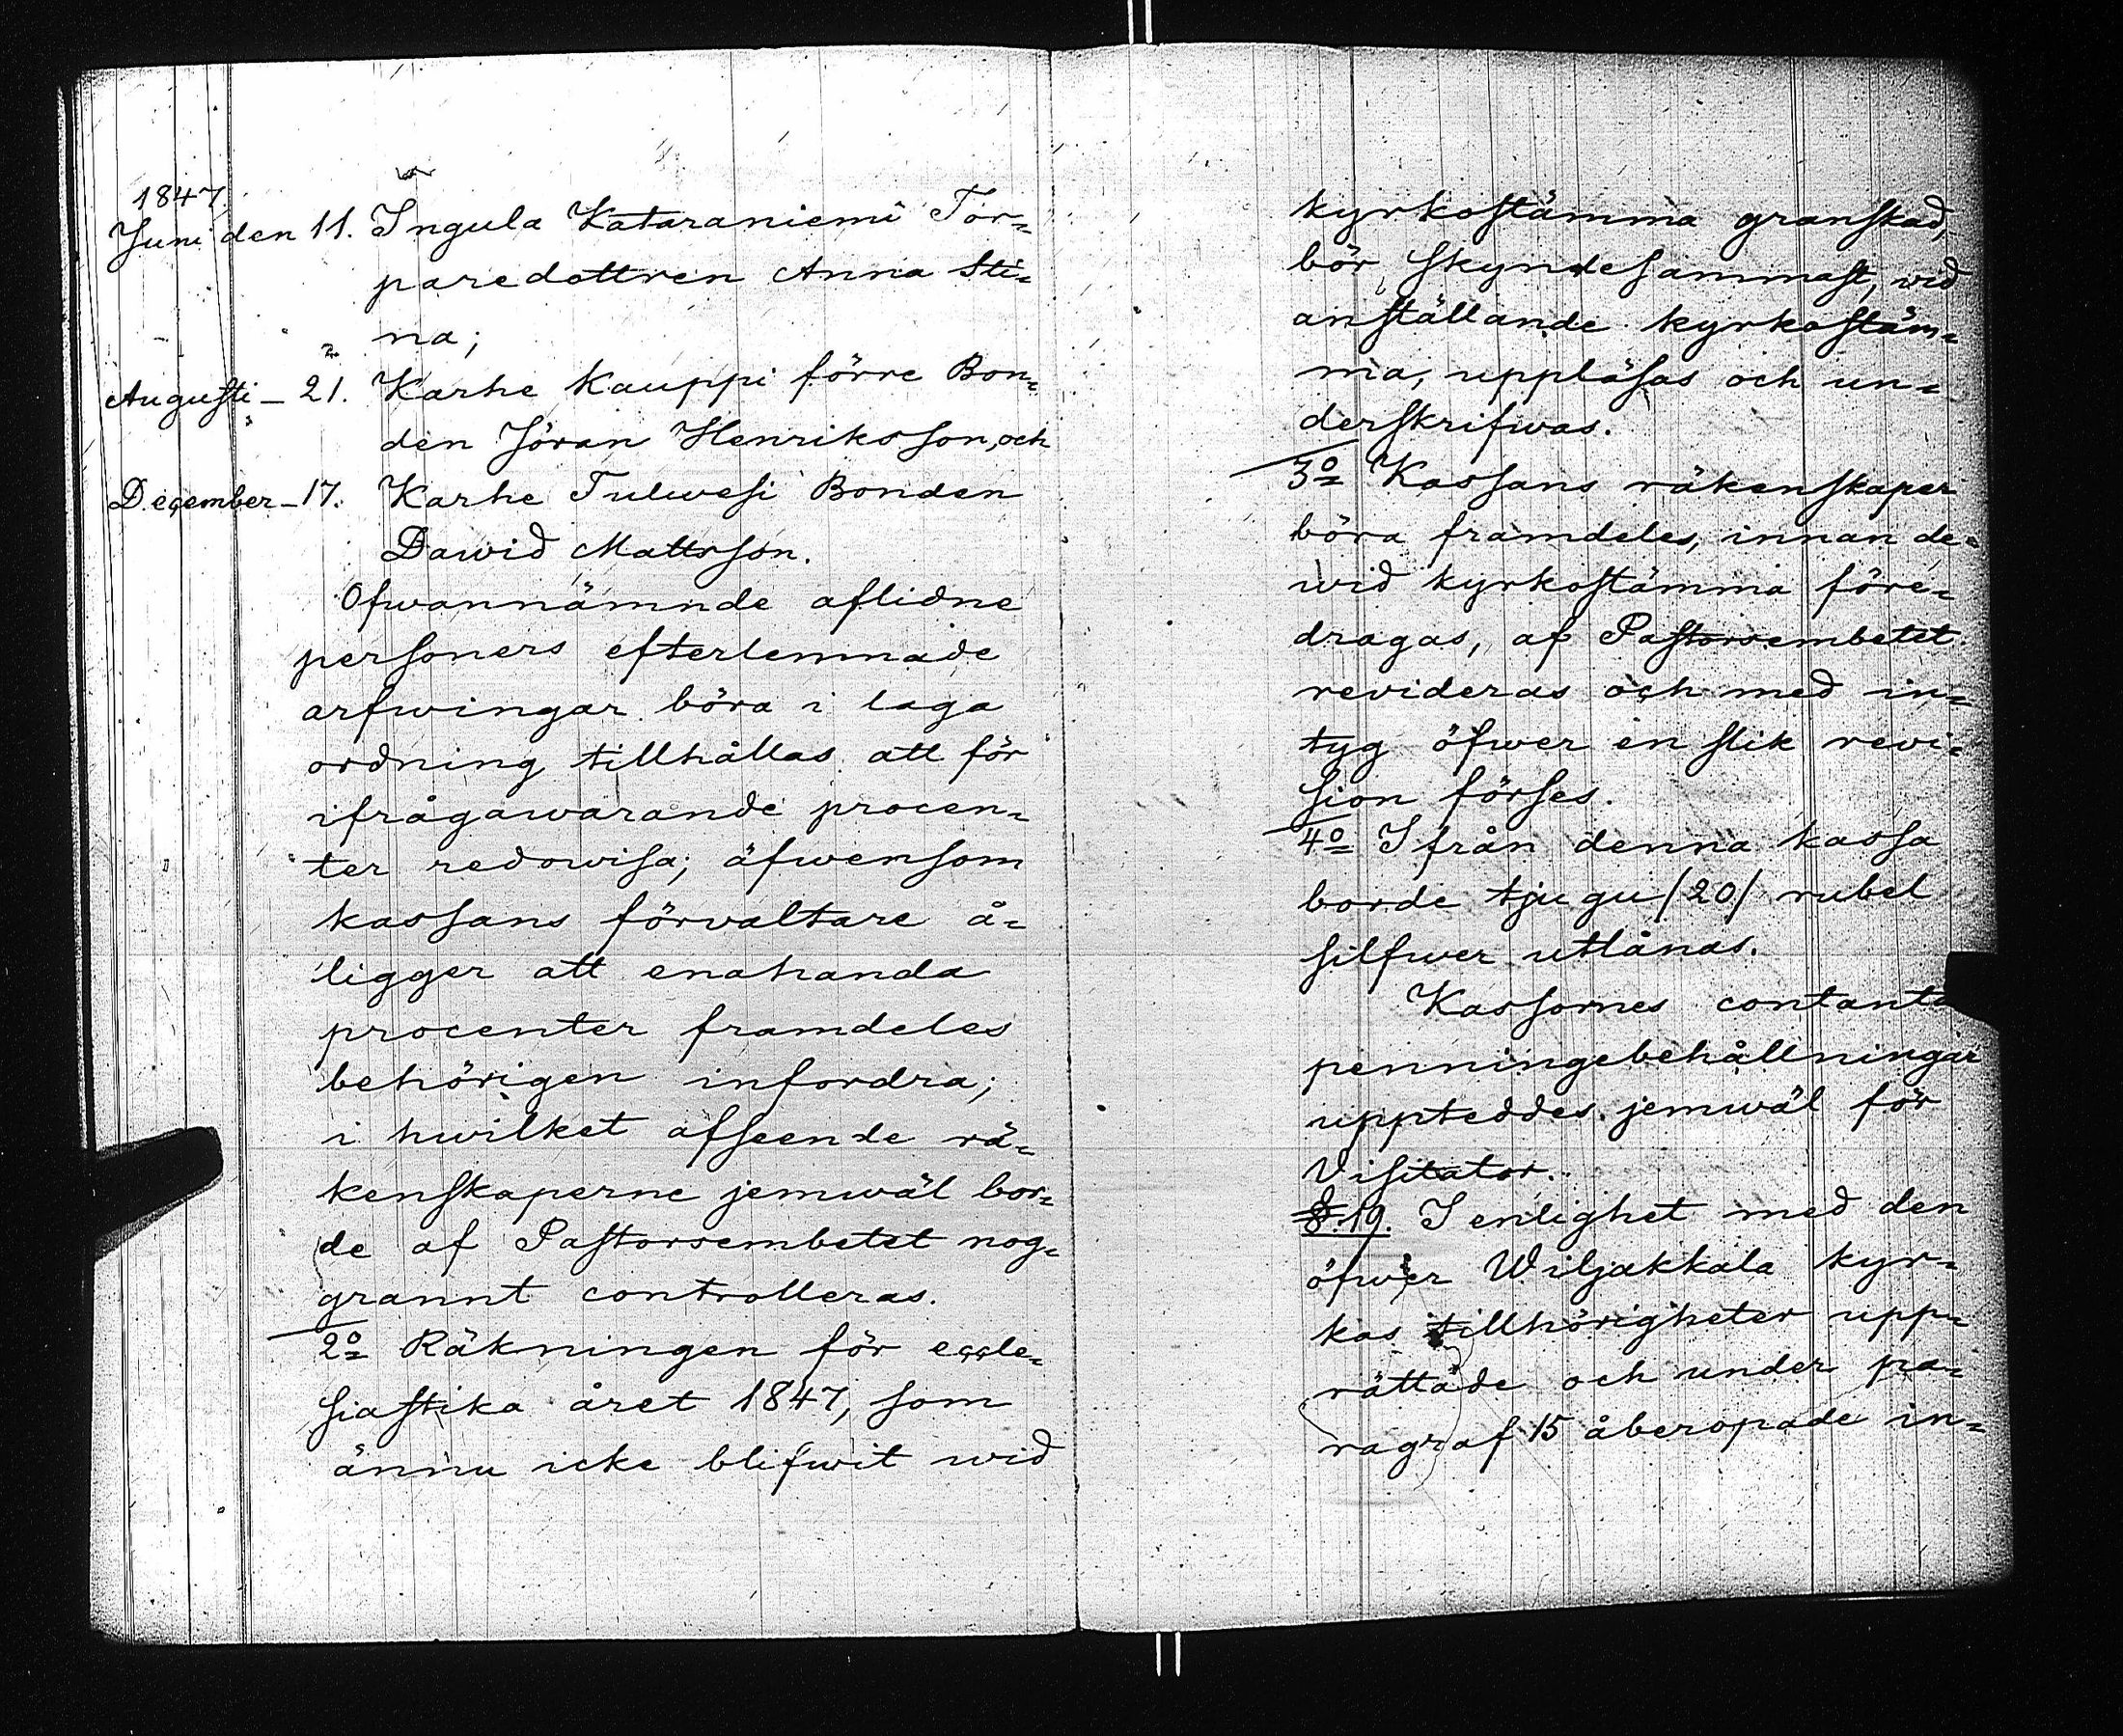 1847.
Juni den 11. Ingula Kataraniemi Tor-
paredottren Anna Sti-
na;
Augusti - 21. Karhe Kauppi förre Bon-
den Jöran Henriksson, och
December - 17. Karhe Tulwesi Bonden
Dawid Mattsson.
Ofwannämnde aflidne
personers efterlemnade
arfwingar böra i laga
ordning tillhållas att för
ifrågawarande procen-
ter redowisa; äfwensom
kassans förvaltare å-
ligger att enahanda
procenter framdeles
behörigen infordra;
i hwilket afseende rä-
kenskaperne jemwäl bor-
de af Pastorsembetet nog-
grannt controlleras.
2o Räkningen för eccle-
siastika året 1847, som
ännu icke blifwit wid
kyrkostämma granskad,
bör skyndesammast, wid
anställande kyrkostäm-
ma, uppläsas och un-
derskrifwas.
3o Kassans räkenskaper
böra framdeles, innan de
wid kyrkostämma före-
dragas, af Pastorsembetet
revideras och med in-
tyg öfwer en slik revi-
sion förses.
4o Ifrån denna kassa
borde tjugu /20/ rubel
silfwer utlånas.
Kassornes contanta
penningebehållningar
uppteddes jemwäl för
Visitator.
§.19. I enlighet med den
öfwer Wiljakkala kyr-
kas tillhörigheter upp-
rättade och under pa-
ragraf 15 åberopade in-